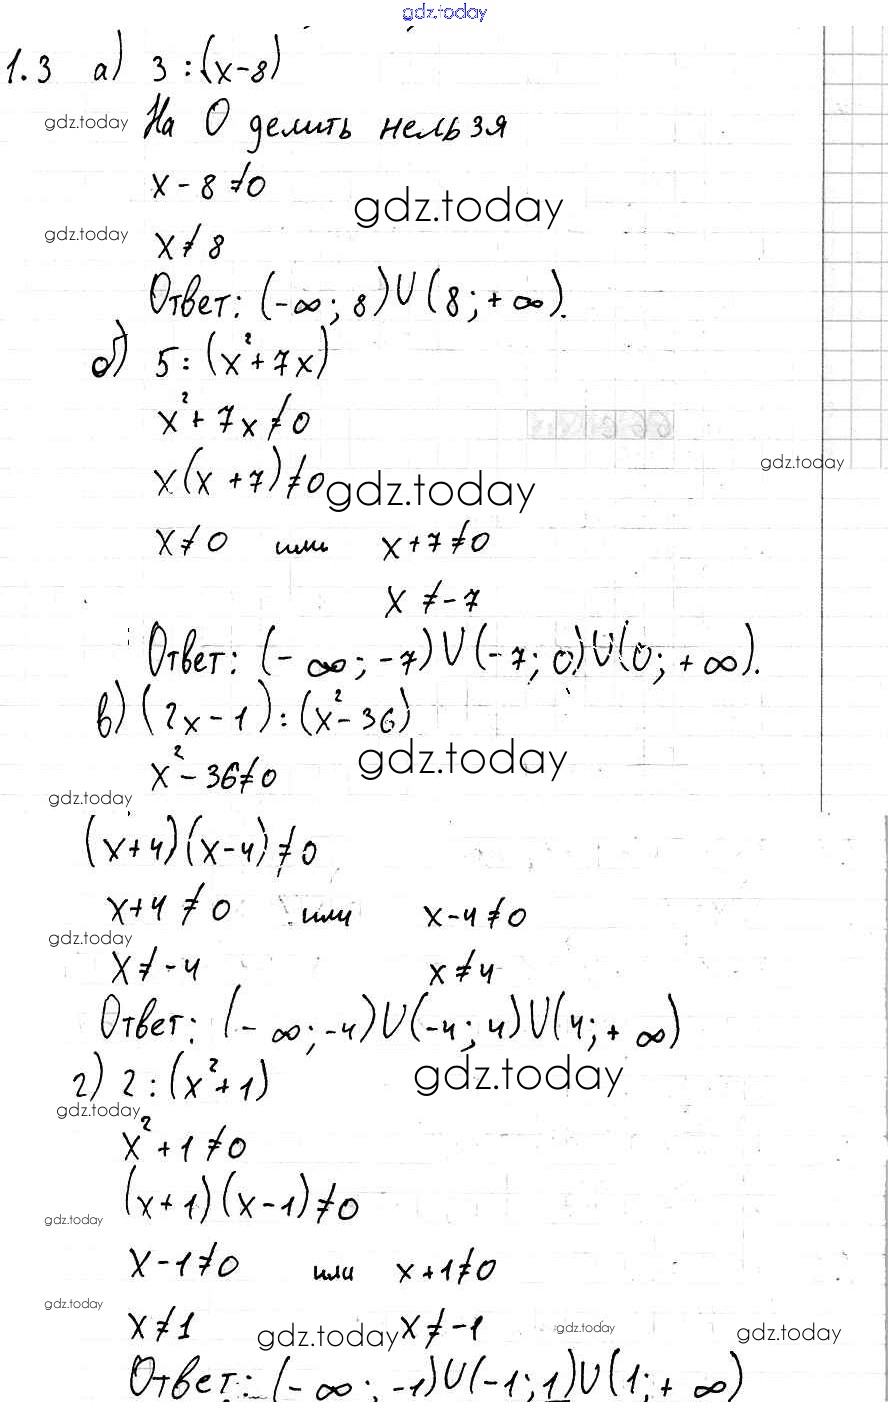 gdz.today
1.3 а) 3 : (x-8)
gdz.today На 0 делить нельзя
x - 8 ≠ 0
gdz.today
gdz.today x ≠ 8
Ответ: (-∞; 8) ∪ (8; +∞).
б) 5 : (x² + 7x)
x² + 7x ≠ 0
gdz.today
x(x + 7) ≠ 0 gdz.today
x ≠ 0 или x + 7 ≠ 0
x ≠ -7
Ответ: (-∞; -7) ∪ (-7; 0) ∪ (0; +∞).
в) (2x - 1) : (x² - 36)
gdz.today
x² - 36 ≠ 0
gdz.today
(x+4)(x-4) ≠ 0
x+4 ≠ 0 или x-4 ≠ 0
gdz.today
x ≠ -4 x ≠ 4
Ответ: (-∞; -4) ∪ (-4; 4) ∪ (4; +∞)
г) 2 : (x² + 1) gdz.today
gdz.today
x² + 1 ≠ 0
(x+1)(x-1) ≠ 0
gdz.today
x - 1 ≠ 0 или x + 1 ≠ 0
gdz.today
x ≠ 1 gdz.today x ≠ -1 gdz.today gdz.today
Ответ: (-∞; -1) ∪ (-1; 1) ∪ (1; +∞)